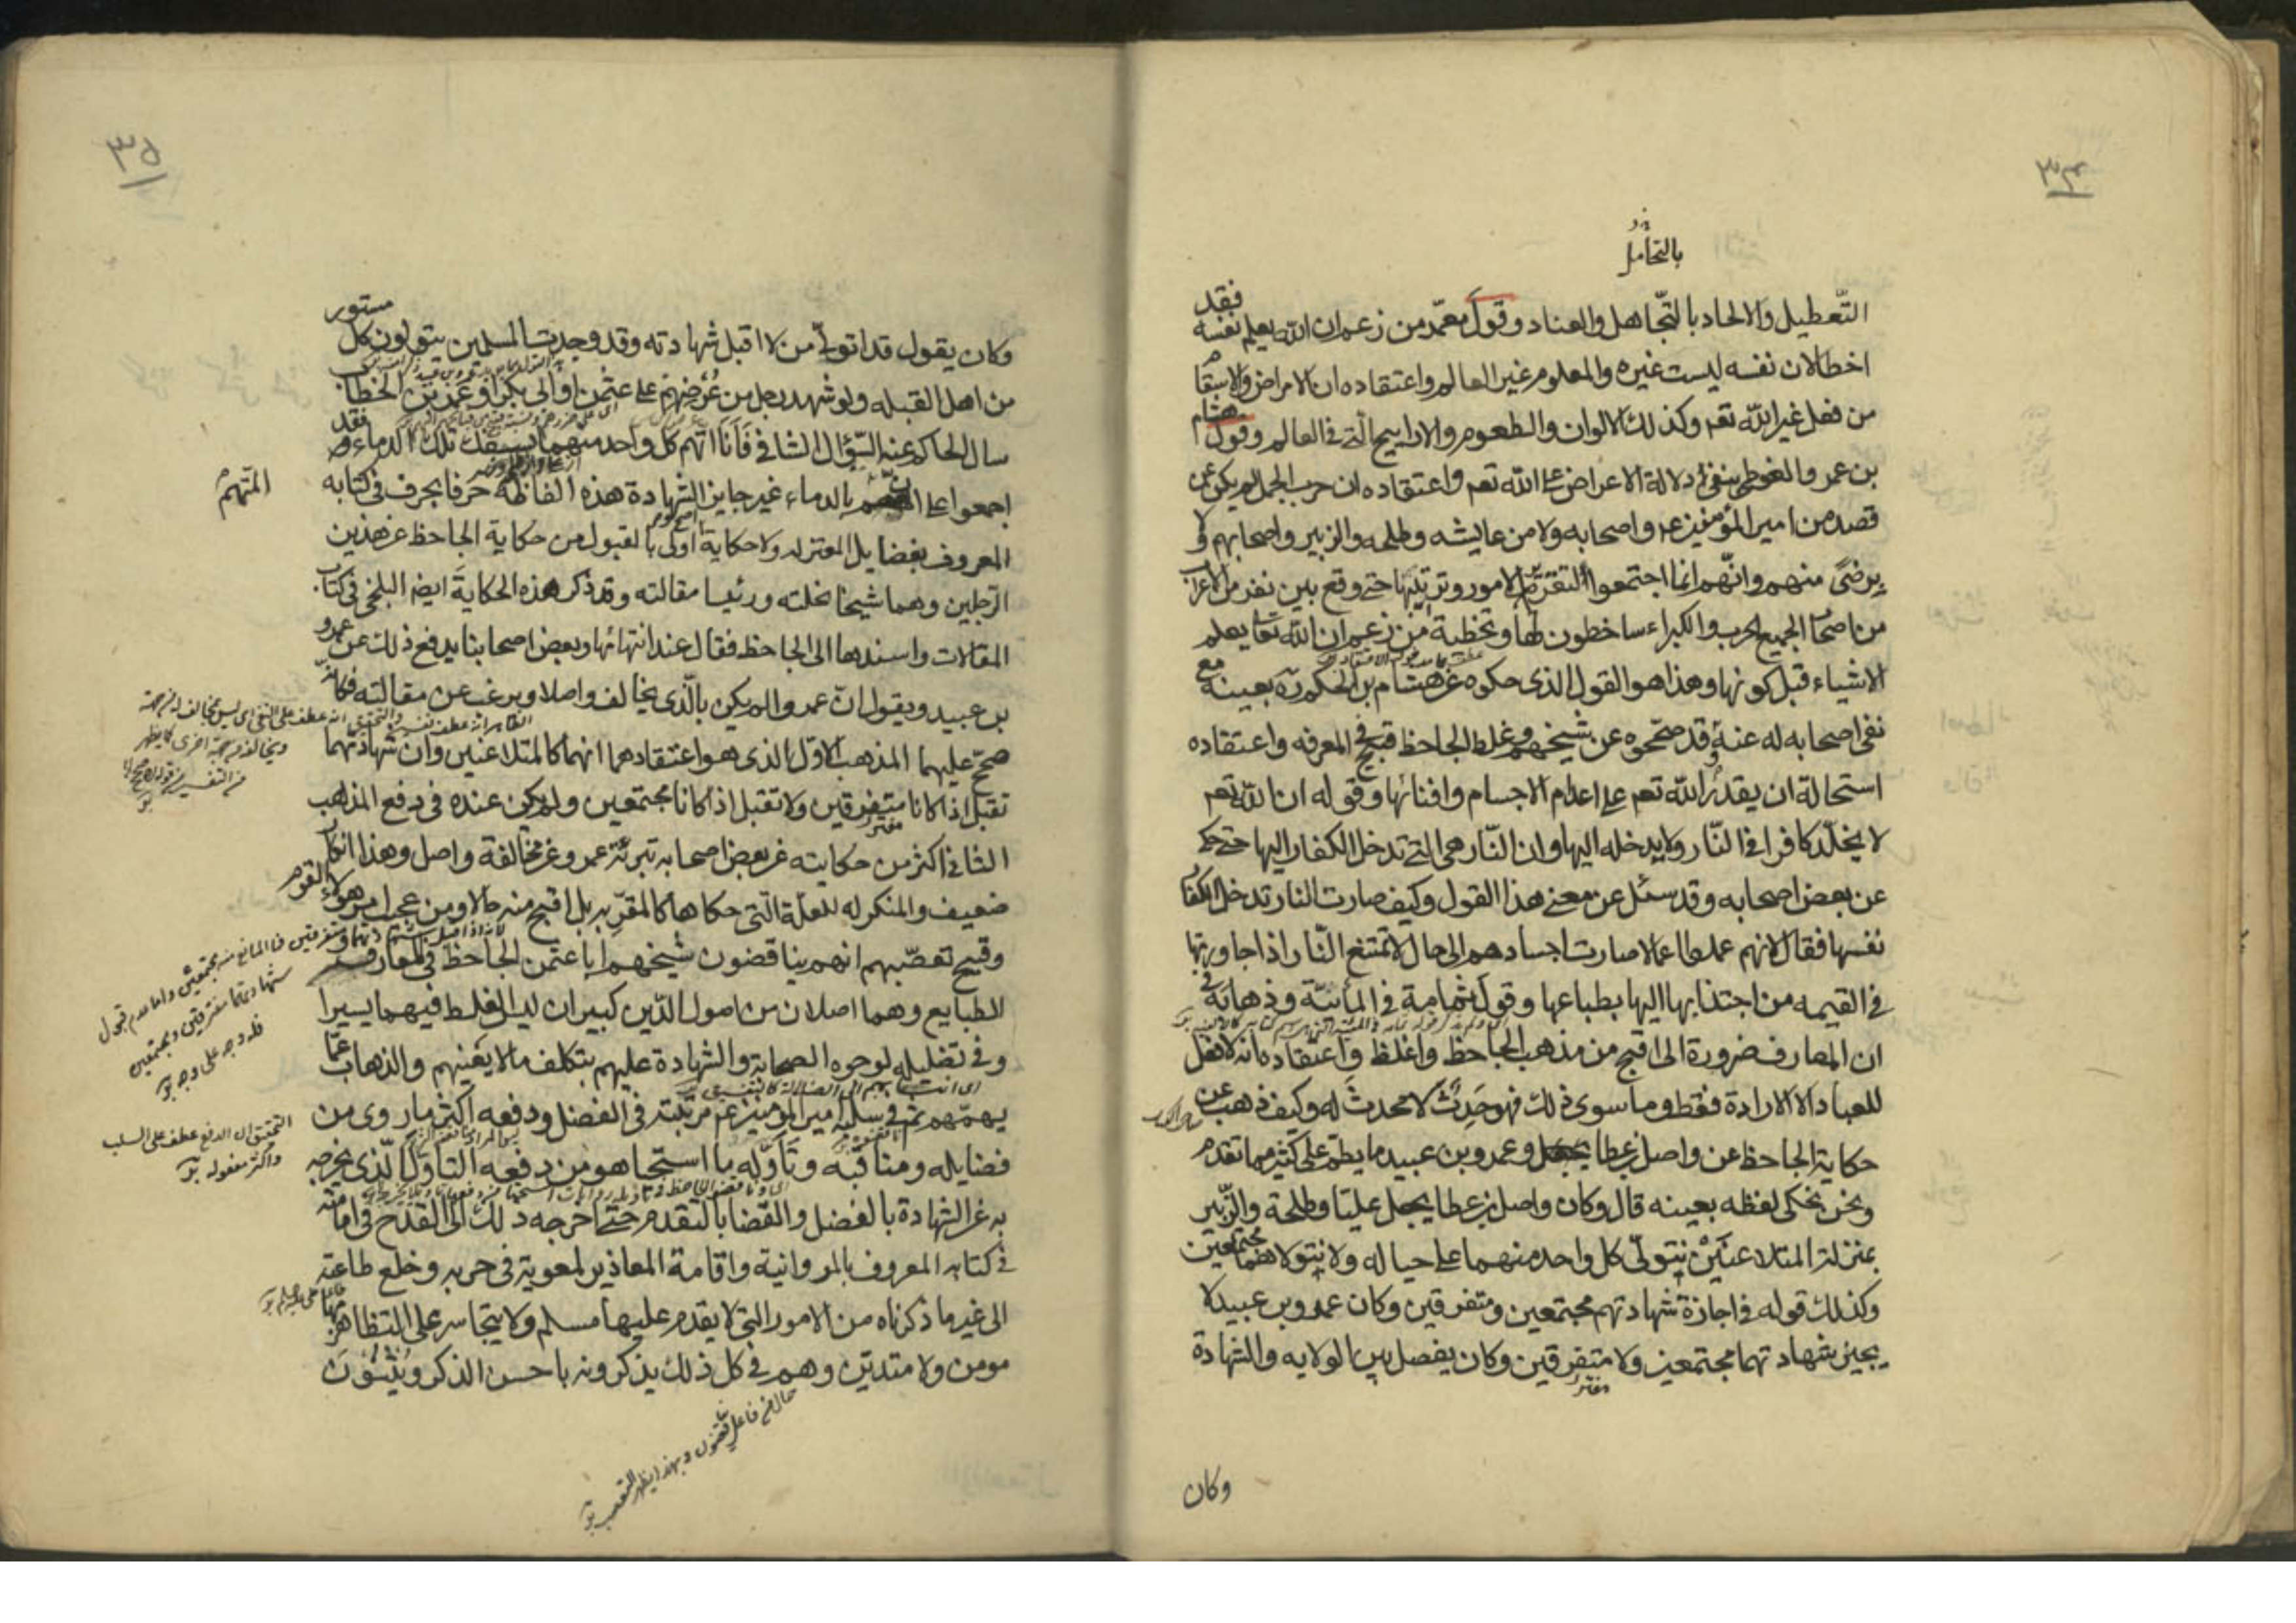 ٣٤
بالتحامل
التّعطيل والالحاد بالتّجاهل والعناد وقول معمّر من زعم ان الله يعلم نفسه فقد
اخطا لان نفسه ليست غيره والمعلوم غير العالم واعتقاده ان الامراض والاسقام
من فعل غير الله تعم وكذلك الالوان والطعوم والاراييح الّتي في العالم وقول هشام
بن عمرو الفوطى بنفى دلالة الاعراض على الله تعم واعتقاده ان حرب الجمل لم يكن عن
قصد من امير المؤمنين ع واصحابه ولا من عايشه وطلحه والزبير واصحابهم ولا
برضىً منهم وانّهم انما اجتمعوا لتقرير الامور وترتيبها حتى وقع بين نفر من الاعراب
من اصحاب الجميع الحرب والكبراء ساخطون لها وتخطية من زعم ان الله تعا يعلم
الاشياء قبل كونها وهذا هو القول الذى حكوه عن هشام بن الحكم ره بعينه مع
نفى اصحابه له عنه وقد صحّحوه عن شيخهم وغلط الجاحظ قبيح في المعرفه واعتقاده
استحالة ان يقدر الله تعم على اعدام الاجسام وافنائها وقوله ان الله تعم
لا يخلّد كافرا في النّار ولا يدخله اليها وان النّار هى التي تدخل الكفار اليها حتى حكى
عن بعض اصحابه وقد سئل عن معنى هذا القول وكيف صارت النار تدخل الكفار
نفسها فقال لانهم عملوا اعمالا صارت اجسادهم الى حال لا تمتنع النّار اذا جاورتها
في القيمه من اجتذابها اليها بطباعها وقول ثمامة في المائيّة وذهابه في
ان المعارف ضرورة الى اقبح من مذهب الجاحظ واغلظ واعتقاده انه لا فعل
للعباد الا الارادة فقط وما سوى ذلك فهو حَدِثٌ لا محدثَ له وكيف ذهب عن
حكاية الجاحظ عن واصل بن عطا وعمرو بن عبيد ما يطمّ على كثير مما تقدم
ونحن نحكى لفظه بعينه قال وكان واصل بن عطا يجعل عليّا وطلحة والزّبير
بمنزلة المتلاعنين نتولّى كل واحد منهما على حياله ولا نتولاهما مجتمعين
وكذلك قوله في اجازة شهادتهم مجتمعين ومتفرقين وكان عمرو بن عبيد لا
يجيز شهادتهما مجتمعين ولا متفرقين وكان يفصل بين الولايه والشهادة
وكان
٣٥
وكان يقول قد اتولّى من لا اقبل شهادته وقد وجدت المسلمين يتولون كل مستور
من اهل القبله ولو شهد رجل من عُرضهم على عثمن او ابى بكر او عمر بن الخطاب
سال الحاكم عنه السّؤال الشافى فَانَا اتّهم كل واحد منهما بسفك تلك الدماء وقد
اجمعوا على ان المتهم بالدماء غير جايز الشهادة هذه الفاظه حرفا بحرف في كتابه
المعروف بفضايل المعتزله ولا حكاية اولى بالقبول من حكاية الجاحظ عن هذين
الرّجلين وهما شيخا نحلته ورئيسا مقالته وقد ذكر هذه الحكاية ايضا البلخى في كتاب
المقالات واسندها الى الجاحظ فقال عند انتهائها وبعض اصحابنا يدفع ذلك عن عمرو
بن عبيد ويقول انّ عمروا لم يكن بالّذى يخالف واصلا ويرغب عن مقالته فكانّه
صحّح عليهما المذهب الاوّل الذى هو اعتقادهما انهما كالمتلاعنين وان شهادتهما
تقبل اذا كانا متفرقين ولا تقبل اذا كانا مجتمعين ولم يكن عنده في دفع المذهب
الثانى اكثر من حكايته عن بعض اصحابه تبرئة عمرو عن مخالفة واصل وهذا انكار
ضعيف والمنكر له للعلّة الّتي حكاها كالمقرّ به بل اقبح منه حالا ومن عجيب امر هولاء القوم
وقبيح تعصّبهم انهم يناقضون شيخهم ابا عثمن الجاحظ في المعارف
الطبايع وهما اصلان من اصول الدّين كبيران ليس الغلط فيهما يسيرا
وفى تضليله لوجوه الصحابة والشهادة عليهم بتكلف ما لا يعنيهم والذهاب عمّا
يهمّهم ثم في سلبه امير المؤمنين ع مرتبته في الفضل ودفعه اكثر ما روى من
فضايله ومناقبه وتَأوّله ما استحيا هو من دفعه التاوّل الّذى يخرجه
به عن الشهادة بالفضل والقضا بالتقدم حتى اخرجه ذلك الى القدح في امامته
في كتابه المعروف بالمروانية واقامة المعاذير لمعوية في حربه وخلع طاعته
الى غير ما ذكرناه من الامور التي لا يقدم عليها مسلم ولا يتجاسر على التظاهر بها
مومن ولا متديّن وهم في كل ذلك يذكرونه باحسن الذكر ويُثنُونَ
المتّهم
التحقيق ان الدفع عطف على السلب
واكثر مفعوله
حال من فاعل يناقضون وبهذا يظهر التعصب